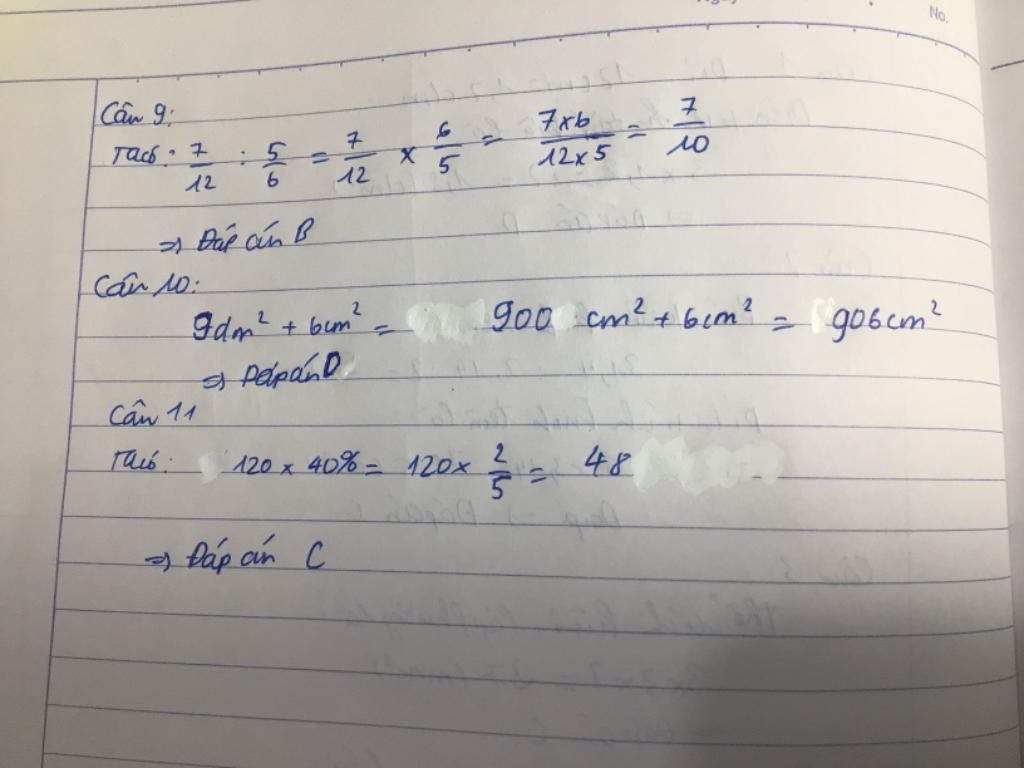 No.
Câu 9:
Ta có: 7/12 : 5/6 = 7/12 x 6/5 = 7x6/12x5 = 7/10
=> Đáp án B
Câu 10:
9dm² + 6cm² = 900 cm² + 6cm² = 906cm²
=> Đáp án D
Câu 11
Ta có: 120 x 40% = 120 x 2/5 = 48
=> Đáp án C